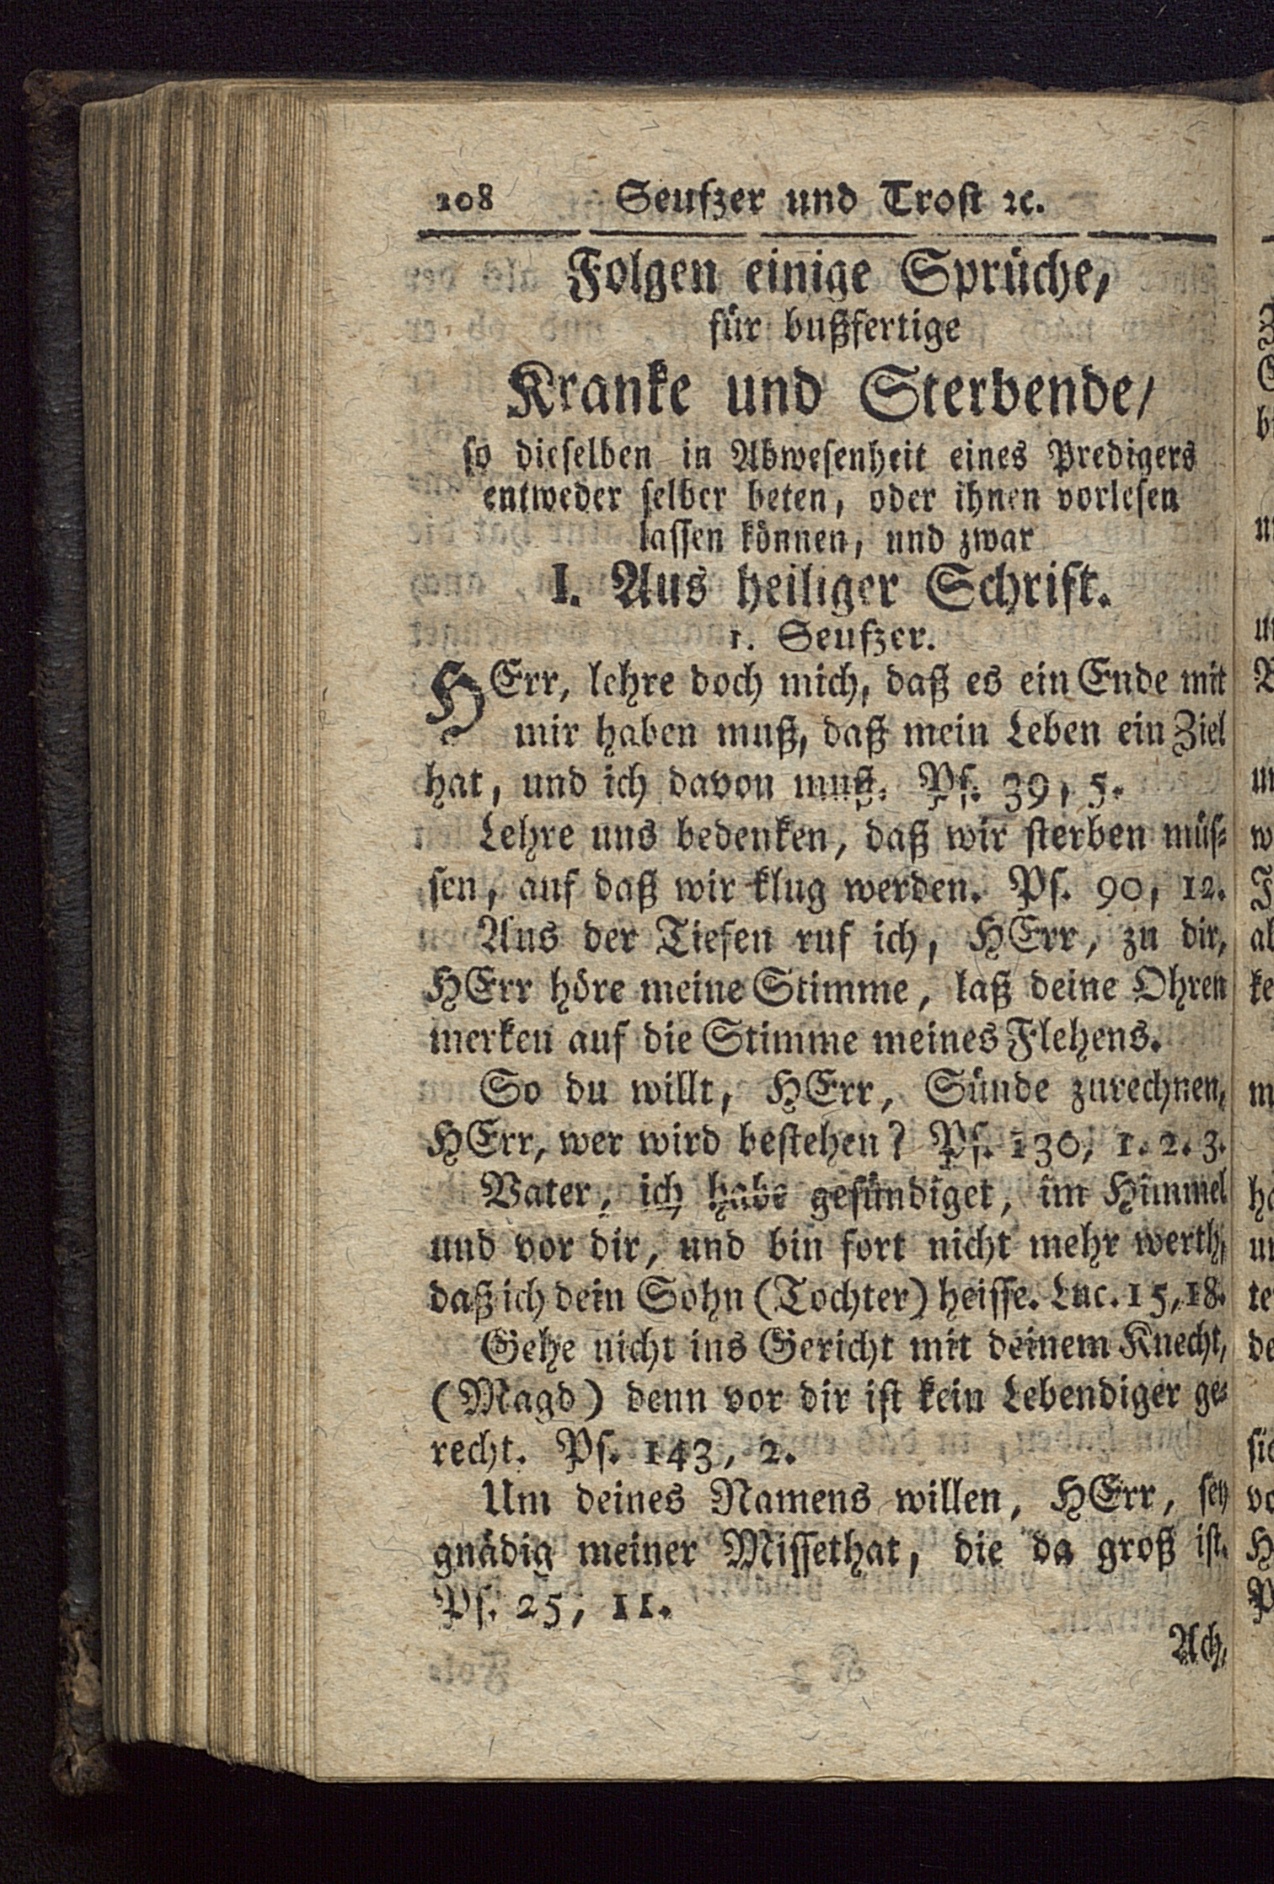 208 Seufzer und Trost ꝛc.
Folgen einige Sprüche/
für bußfertige
Kranke und Sterbende/
so dieselben in Abwesenheit eines Predigers
entweder selber beten, oder ihnen vorlesen
lassen können, und zwar
I. Aus heiliger Schrift.
1. Seufzer.
HErr, lehre doch mich, daß es ein Ende mit
mir haben muß, daß mein Leben ein Ziel
hat, und ich davon muß. Ps. 39, 5.
Lehre uns bedenken, daß wir sterben müs-
sen, auf daß wir klug werden. Ps. 90, 12.
Aus der Tiefen ruf ich, HErr, zu dir,
HErr höre meine Stimme, laß deine Ohren
merken auf die Stimme meines Flehens.
So du willt, HErr, Sünde zurechnen,
HErr, wer wird bestehen? Ps. 130, 1. 2. 3.
Vater, ich habe gesündiget, im Himmel
und vor dir, und bin fort nicht mehr werth,
daß ich dein Sohn (Tochter) heisse. Luc. 15, 18.
Gehe nicht ins Gericht mit deinem Knecht,
(Magd) denn vor dir ist kein Lebendiger ge-
recht. Ps. 143, 2.
Um deines Namens willen, HErr, sey
gnädig meiner Missethat, die da groß ist.
Ps. 25, 11.
Ach,